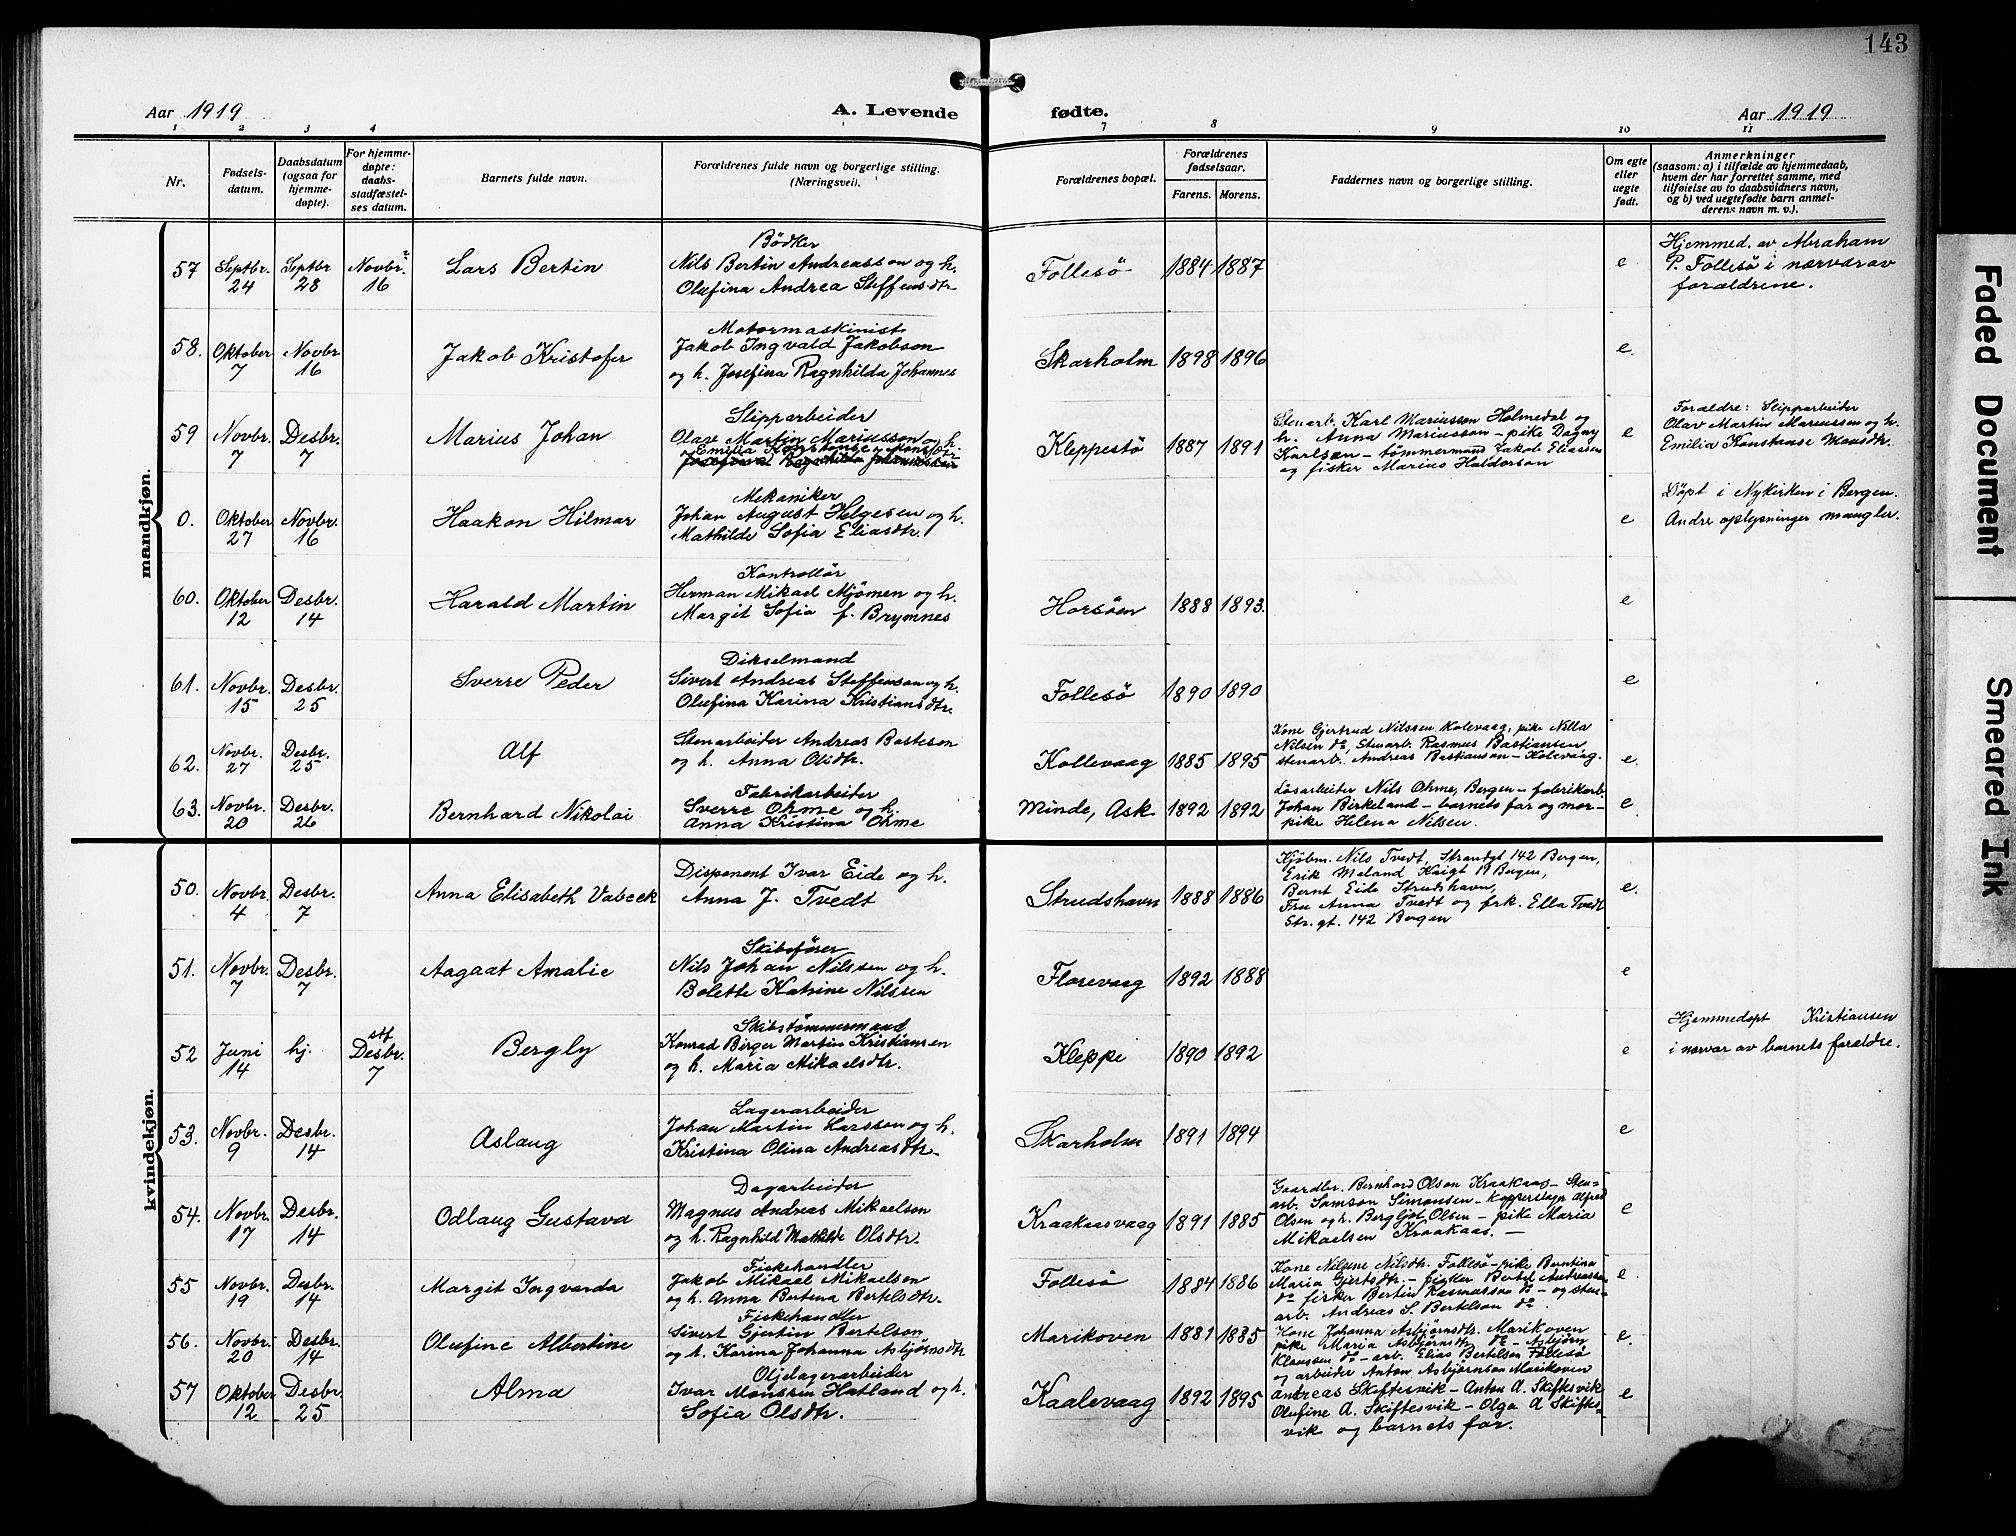 143
Aar 1919
A. Levende
fødte.
Aar 1919
1 2 3 4 7 8 9 10 11
Nr.
Fødsels-
datum.
Daabsdatum
(ogsaa for
hjemme-
døpte).
For hjemme-
døpte:
daabs-
stadfæstel-
ses datum.
Barnets fulde navn.
Forældrenes fulde navn og borgerlige stilling.
(Næringsvei).
Forældrenes bopæl.
Forældrenes
fødselsaar.
Farens. Morens.
Faddernes navn og borgerlige stilling.
Om egte
eller
uegte
født.
Anmerkninger
(saasom: a) i tilfælde av hjemmedaab,
hvem der har forrettet samme, med
tilføielse av to daabsvidners navn,
og b) ved uegtefødte barn anmel-
derens navn m. v.).
mandkjøn.
57 Septbr. 24 Septbr 28 Novbr. 16 Lars Bertin
Bødker
Nils Bertin Andreassen og h.
Olufina Andrea Steffensdtr
Follesö 1884 1887 e
Hjemmed. av Abraham
P. Follesö i nærvær av
forældrene.
58. Oktober 7 Novbr 16 Jakob Kristofer
Motormaskinist
Jakob Ingvald Jakobson
og h. Josefina Ragnhilda Johannes
Skarholm 1898 1896 e.
59 Novbr. 7 Desbr. 7 Marius Johan
Slipparbeider
Olav Martin Mariusson og h.
Emilia Konstanse Monsdtr
Josefina Ragnhilda Johannesdtr
Kleppestö 1887 1891
Stenarb. Karl Mariussen Holmedal og
h. Anna Mariussen - pike Dagny
Karlsen - tømmermand Jakob Eliassen
og fisker Marius Haldorson
e
Forældre: Slipparbeider
Olav Martin Mariussen og h.
Emilia Konstanse Monsdtr.
0. Oktober 27 Novbr. 16 Haakon Hilmar
Mekaniker
Johan August Helgesen og h.
Mathilde Sofia Eliasdtr.
e
Döpt i Nykirken i Bergen.
Andre oplysninger mangler.
60. Oktober 12 Desbr. 14 Harald Martin
Kontrollør
Herman Mikael Mjømen og h.
Margit Sofia f. Brymnes
Horsöen 1888 1893. e
61. Novbr. 15 Desbr. 25 Sverre Peder
Dikselmand
Sivert Andreas Steffenson og h.
Olufina Karina Kristiansdtr.
Follesö 1890 1890 e
62. Novbr. 27 Desbr. 25 Alf
Stenarbeider Andreas Basteson
og h. Anna Olsdtr.
Kollevaag 1885 1895
Kone Gjertrud Nilssen, Kolevaag, pike Nilla
Nilsen do, Stenarb. Rasmus Bastiansen,
stenarb. Andreas Bastianson - Kolevaag.
e.
63. Novbr. 20 Desbr. 26 Bernhard Nikolai
Fabrikarbeider
Sverre Ohme og h.
Anna Kristina Ohme
Minde, Ask 1892 1892
Løsarbeider Nils Ohme, Bergen - fabrikarb.
Johan Birkeland - barnets far og mor -
pike Helena Nilsen.
e
kvindekjøn.
50. Novbr. 4 Desbr. 7 Anna Elisabeth Vabeek
Disponent Ivar Eide og h.
Anna J. Tvedt
Strudshavn 1888 1886
Kjøbm. Nils Tvedt, Strandgt 142 Bergen,
Erik Meland Kaigt 19 Bergen,
Bernt Eide Strudshavn,
Fru Anna Tvedt og frk. Ella Tvedt
Str. gt. 142 Bergen
e.
51. Novbr. 7 Desbr. 7 Aagaat Amalie
Skibsfører
Nils Johan Nilssen og h.
Bolette Katrine Nilssen
Florevaag 1892 1888 e
52 Juni 14 hj. stf Desbr. 7 Bergly
Skibstømmermand
Konrad Birger Martin Kristiansen
og h. Maria Mikaelsdtr.
Kleppe 1890 1892 e
Hjemmedøpt Kristiansen
i nærvær av barnets forældre.
53. Novbr. 9 Desbr. 14 Aslaug
Lagerarbeider
Johan Martin Larssen og h.
Kristina Olina Andreasdtr.
Skarholm 1891 1894 e
54. Novbr. 17 Desbr. 14 Odlaug Gustava
Dagarbeider
Magnus Andreas Mikaelson
og h. Ragnhild Mathilde Olsdtr.
Kraakaasvaag 1891 1885
Gaardbr. Bernhard Olson Kraakaas - Sten-
arb. Samson Simonsen - Kopperslagr Alfred
Olsen og h. Bergljot Olsen - pike Maria
Mikaelsen Kraakaas. -
e
55 Novbr. 19 Desbr. 14 Margit Ingvarda
Fiskehandler
Jakob Mikael Mikaelsen
og h. Anna Bertina Bertelsdtr.
Follesö 1884 1886
Kone Nilsine Nilsdtr. Follesö - pike Berntina
Maria Gjertsdtr. - fisker Bertel Andreassen
do fisker Bertin Rasmussen do - og sten-
arb. Andreas S. Bertelson do.
e.
56. Novbr. 20 Desbr. 14 Olufine Albertine
Fiskehandler
Sivert Gjertin Bertelson
og h. Karina Johanna Asbjørnsdtr
Marikoven 1881 1885
Kone Johanna Asbjørnsdtr. Marikoven
pike Maria Asbjørnsdtr do - Asbjørn
Klaussen do - arb. Elias Bertelsen Follesö
og arbeider Anton Asbjørnson Marikoven
e.
57 Oktober 12 Desbr. 25 Alma
Oljelagerarbeider
Ivar Monssen Hatland og h.
Sofia Olsdtr.
Kaalevaag 1892 1895
Andreas Skiftesvik - Anton A. Skiftesvik
Olufine A. Skiftesvik - Olga A Skiftes-
vik og barnets far.
e
Faded Document
Smeared Ink